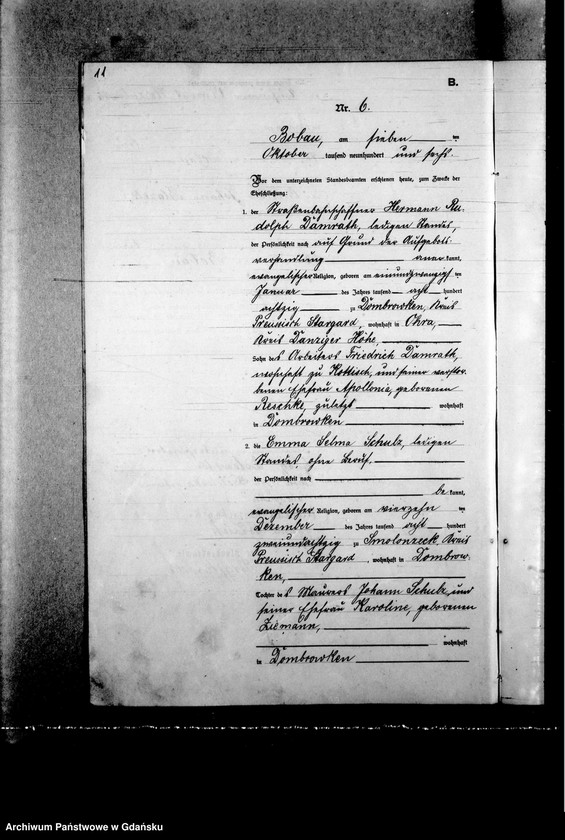 11
B.
Nr. 6.
Bobau, am sieben ten
Oktober tausend neunhundert und sechs.
Vor dem unterzeichneten Standesbeamten erschienen heute, zum Zwecke der
Eheschließung:
1. der Straßenbahnschaffner Hermann Ru-
dolph Damrath, ledigen Standes,
der Persönlichkeit nach auf Grund der Aufgebots-
verhandlung aner kannt,
evangelischer Religion, geboren am einundzwanzig ten
Januar des Jahres tausend acht hundert
achtzig zu Dombrowken, Kreis
Preussisch Stargard, wohnhaft in Ohra,
Kreis Danziger Höhe,
Sohn des Arbeiters Friedrich Damrath,
wohnhaft zu Kottisch, und seiner verstor-
benen Ehefrau Apollonie, geborenen
Reschke, zuletzt wohnhaft
in Dombrowken
2. die Emma Selma Schulz, ledigen
Standes, ohne Beruf.
der Persönlichkeit nach
be kannt,
evangelischer Religion, geboren am vierzehn ten
Dezember des Jahres tausend acht hundert
zweiundachtzig zu Smolonzeck Kreis
Preussisch Stargard, wohnhaft in Dombrow-
ken,
Tochter des Maurers Johann Schulz und
seiner Ehefrau Karoline, geborenen
Ziemann,
wohnhaft
in Dombrowken
Archiwum Państwowe w Gdańsku